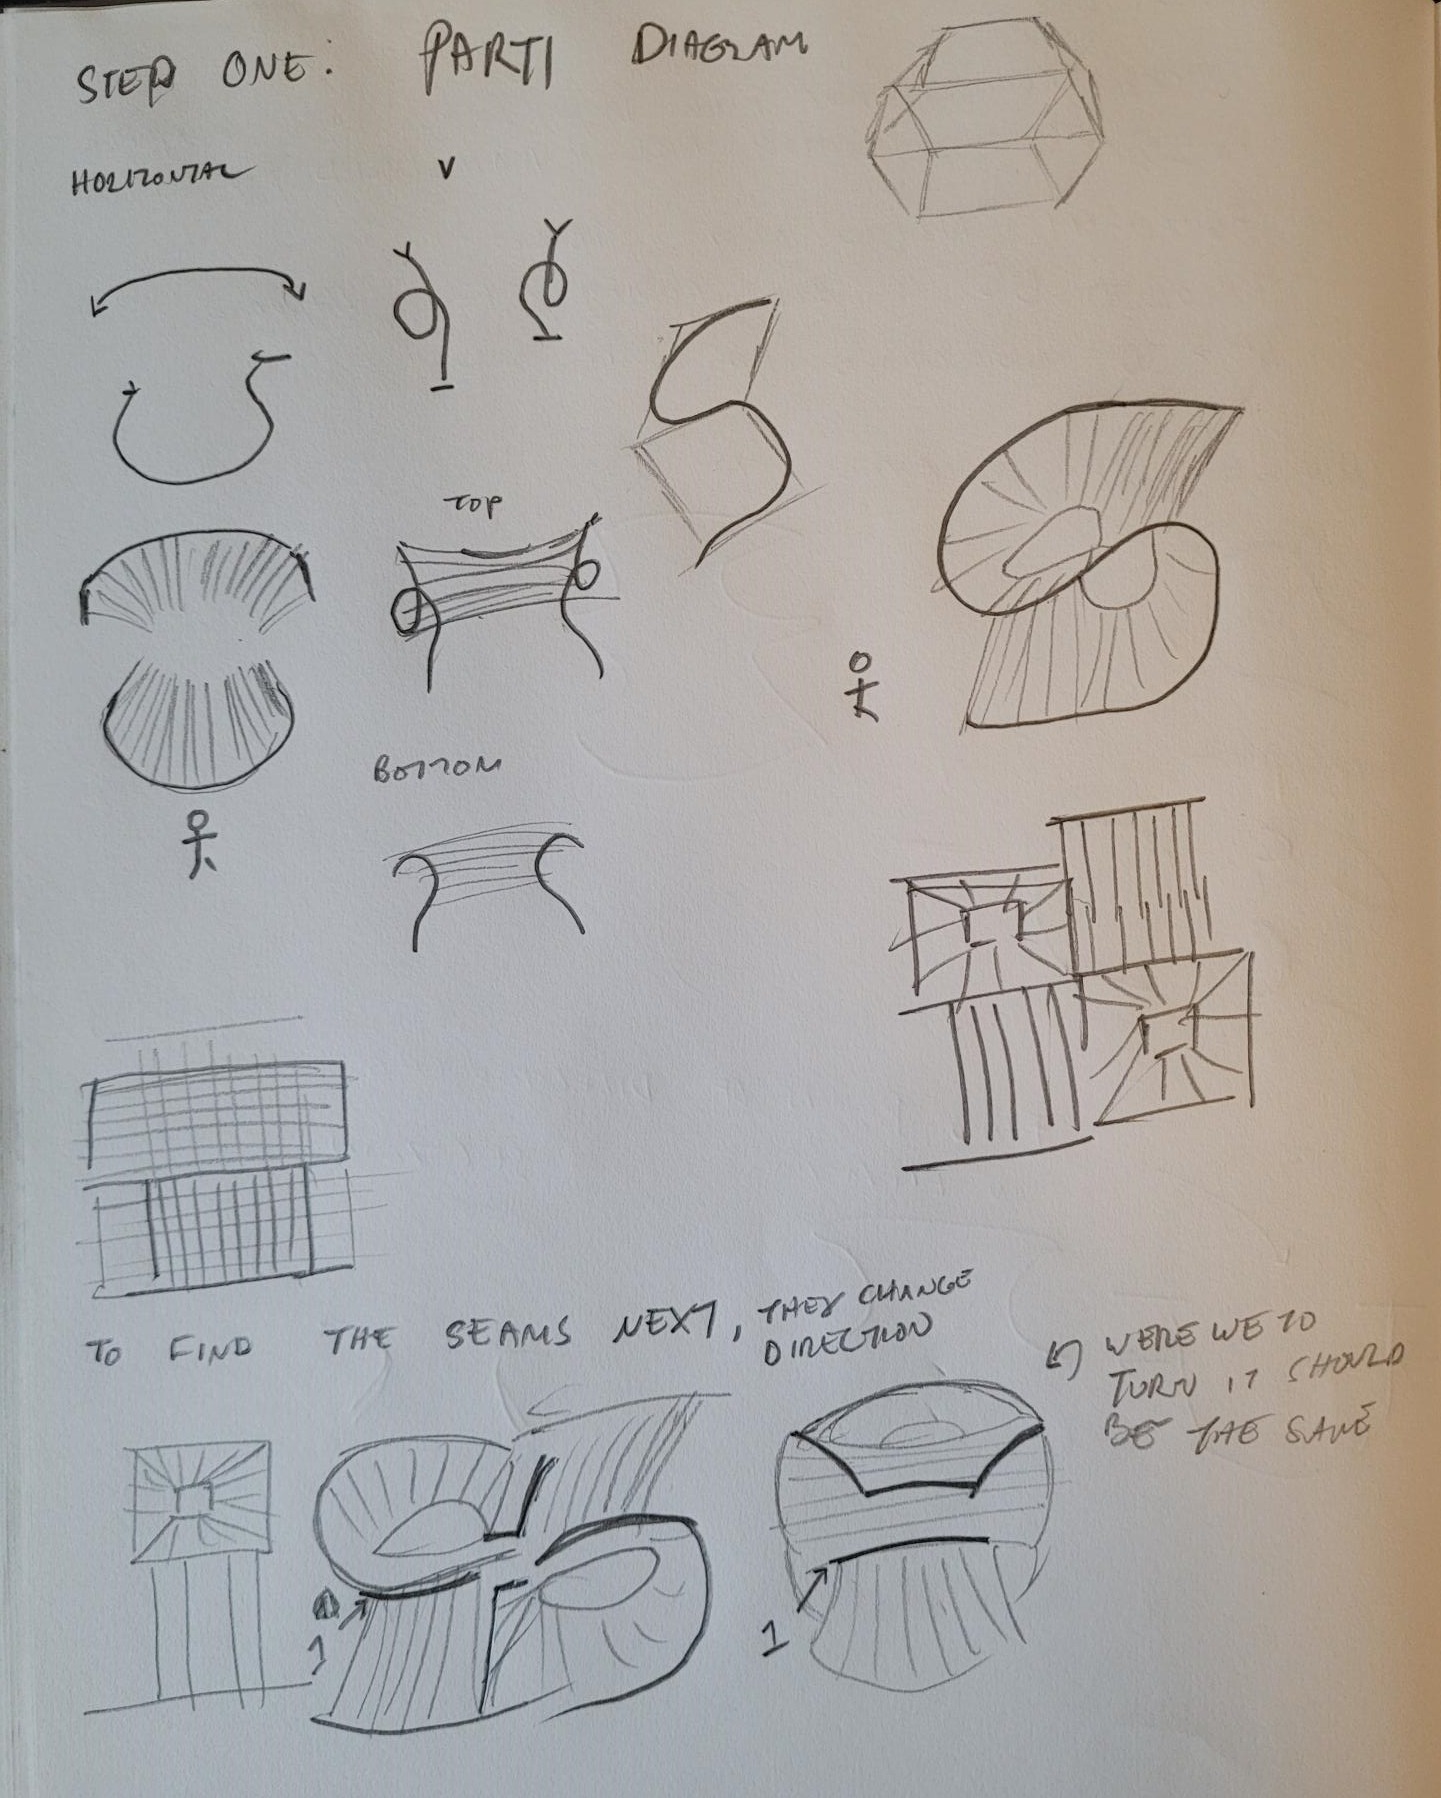 STEP ONE: PARTI DIAGRAM
HORIZONTAL V
TOP
BOTTOM
TO FIND THE SEAMS NEXT, THEY CHANGE
DIRECTION
WERE WE TO
TURN IT SHOULD
BE THE SAME
1
1